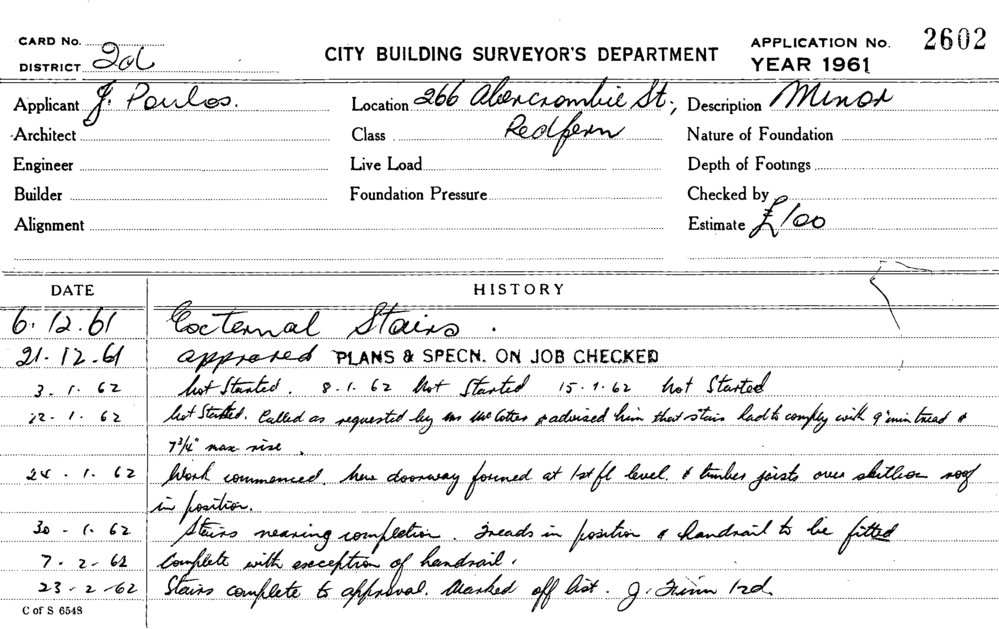 CARD No.
DISTRICT 2d
CITY BUILDING SURVEYOR'S DEPARTMENT
APPLICATION No. 2602
YEAR 1961
Applicant J. Poulos. Location 266 Abercrombie St., Description Minor
Architect Class Redfern Nature of Foundation
Engineer Live Load Depth of Footings
Builder Foundation Pressure Checked by
Alignment Estimate £100
DATE HISTORY
6.12.61 External Stairs.
21.12.61 approved PLANS & SPECN. ON JOB CHECKED
3.1.62 Not Started. 8.1.62 Not Started 15.1.62 Not Started
22.1.62 Not Started. Called as requested by Mr McCotter & advised him that stairs had to comply with 9" min tread &
7¾" max rise.
24.1.62 Work commenced. New doorway formed at 1st fl level. & timber joists over skillion roof
in position.
30.1.62 Stairs nearing completion. Treads in position & handrail to be fitted
7.2.62 Complete with exception of handrail.
23.2.62 Stairs complete to approval. Marked off list. J.
C of S 6548